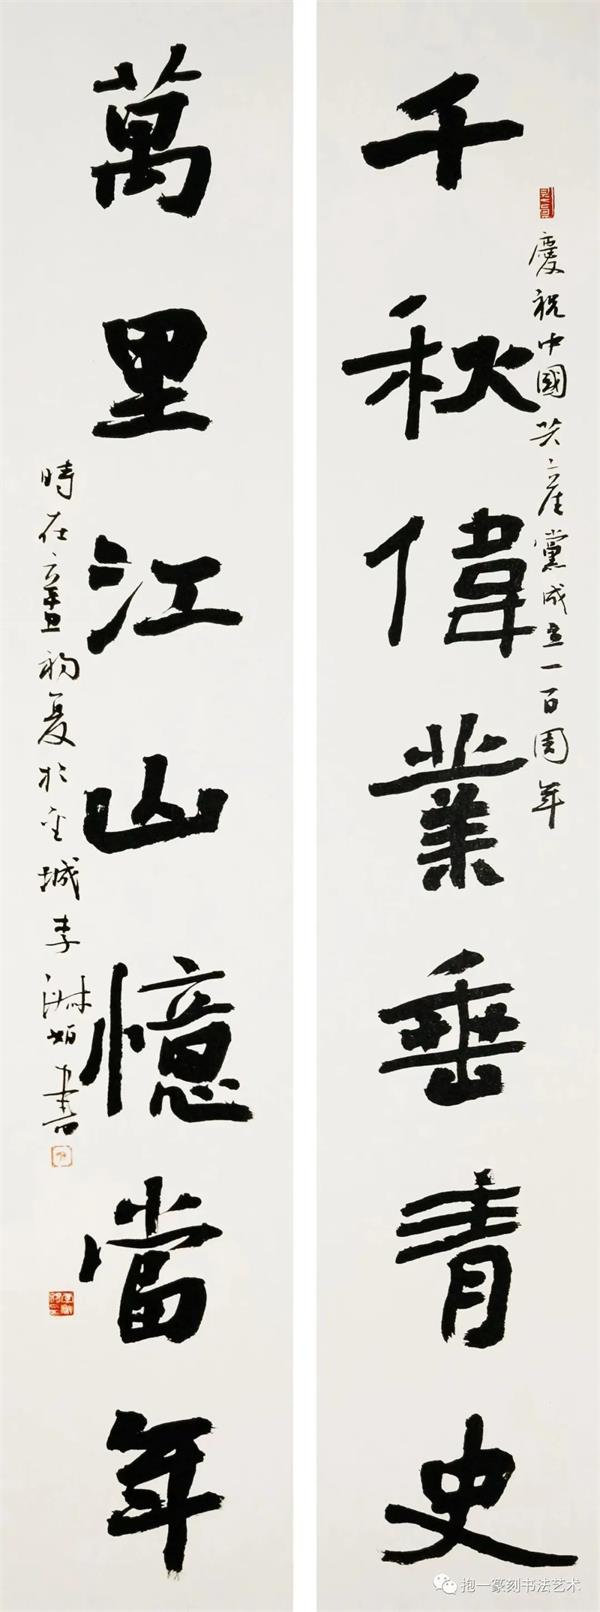 千秋偉業垂青史
慶祝中國共產黨成立一百周年
萬里江山憶當年
時在辛丑初夏於
城李
書
抱一篆刻书法艺术